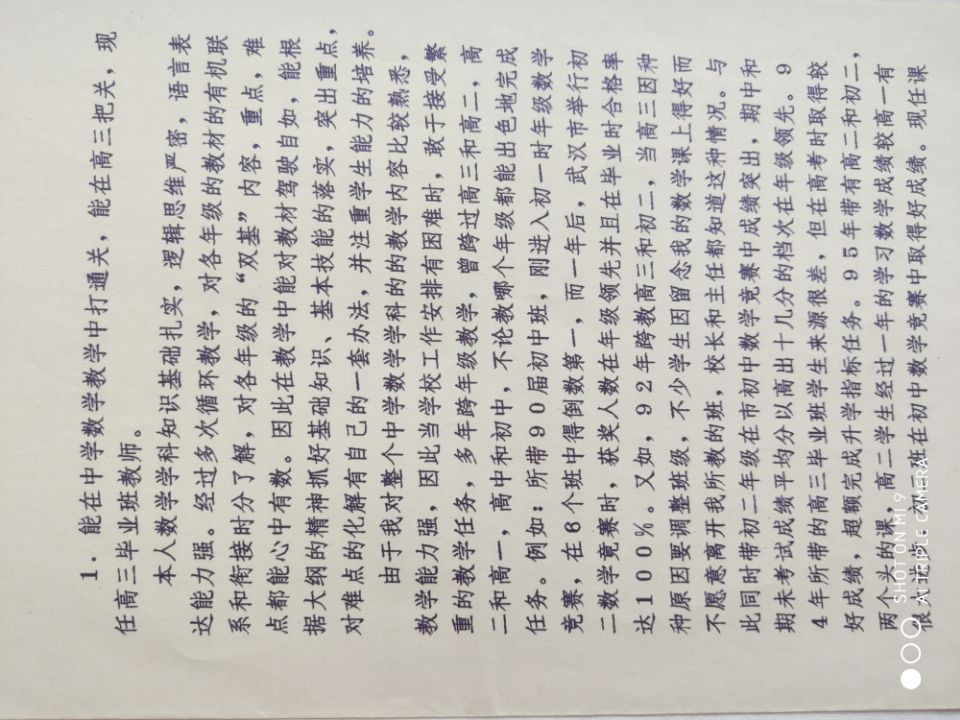 1．能在中学数学教学中打通关，能在高三把关，现
任高三毕业班教师。
本人数学学科知识基础扎实，逻辑思维严密，语言表
达能力强。经过多次循环教学，对各年级的教材的有机联
系和衔接时分了解，对各年级的“双基”内容，重点，难
点都能心中有数。因此在教学中能对教材驾驶自如，能根
据大纲的精神抓好基础知识、基本技能的落实，突出重点，
对难点的化解有自己的一套办法，并注重学生能力的培养。
由于我对整个中学数学学科的的教学内容比较熟悉，
教学能力强，因此当学校工作安排有困难时，敢于接受繁
重的教学任务，多年跨年级教学，曾跨过高三和高二，高
二和高一，高中和初中，不论教哪个年级都能出色地完成
任务。例如：所带90届初中班，刚进入初一时年级数学
竞赛，在6个班中得倒数第一，而一年后，武汉市举行初
二数学竞赛时，获奖人数在年级领先并且在毕业时合格率
达100%。又如，92年跨教高三和初二，当高三因种
种原因要调整班级，不少学生因留念我的数学课上得好而
不愿意离开我所教的班，校长和主任都知道这种情况。与
此同时带初二年级在市初中数学竞赛中成绩突出，期中和
期未考试成绩平均分以高出十几分的档次在年级领先。9
4年所带的高三毕业班学生来源很差，但在高考时取得较
好成绩，超额完成升学指标任务。95年带有高二和初二，
两个头的课，高二学生经过一年的学习数学成绩较高一有
很大进步，初二班在初中数学竞赛中取得好成绩。现任课
SHOT ON MI 9
AI TRIPLE CAMERA